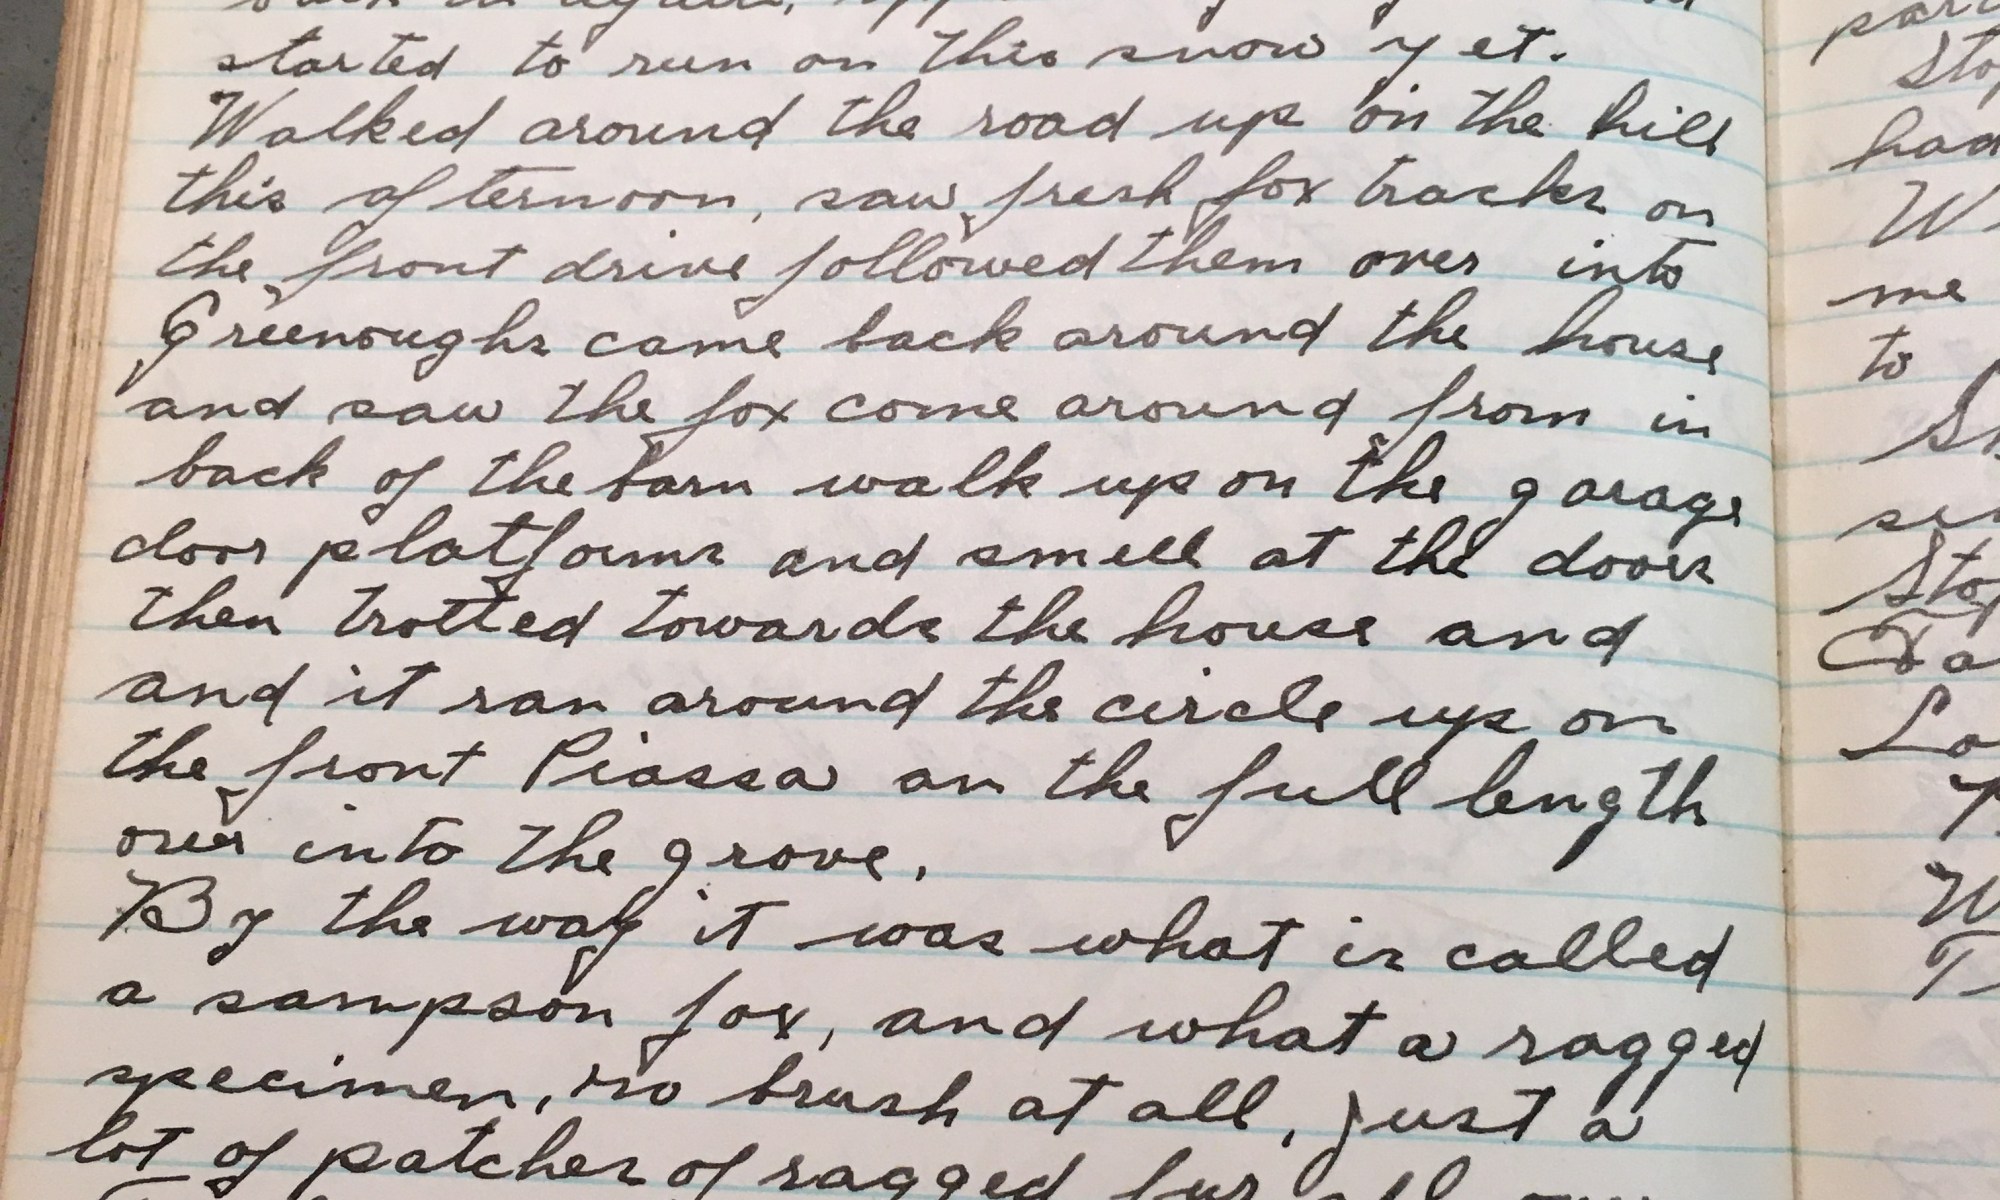 started to run on this snow yet.
Walked around the road up on the hill
this afternoon, saw fresh fox tracks on
the front drive followed them over into
Greenoughs came back around the house
and saw the fox come around from in
back of the barn walk up on the garage
door platforms and smell at the doors
then trotted towards the house and
and it ran around the circle up on
the front Piassa an the full length
over into the grove.
By the way it was what is called
a sampson fox, and what a ragged
specimen, no brush at all, just a
lot of patches of ragged fur
had
W
me
to